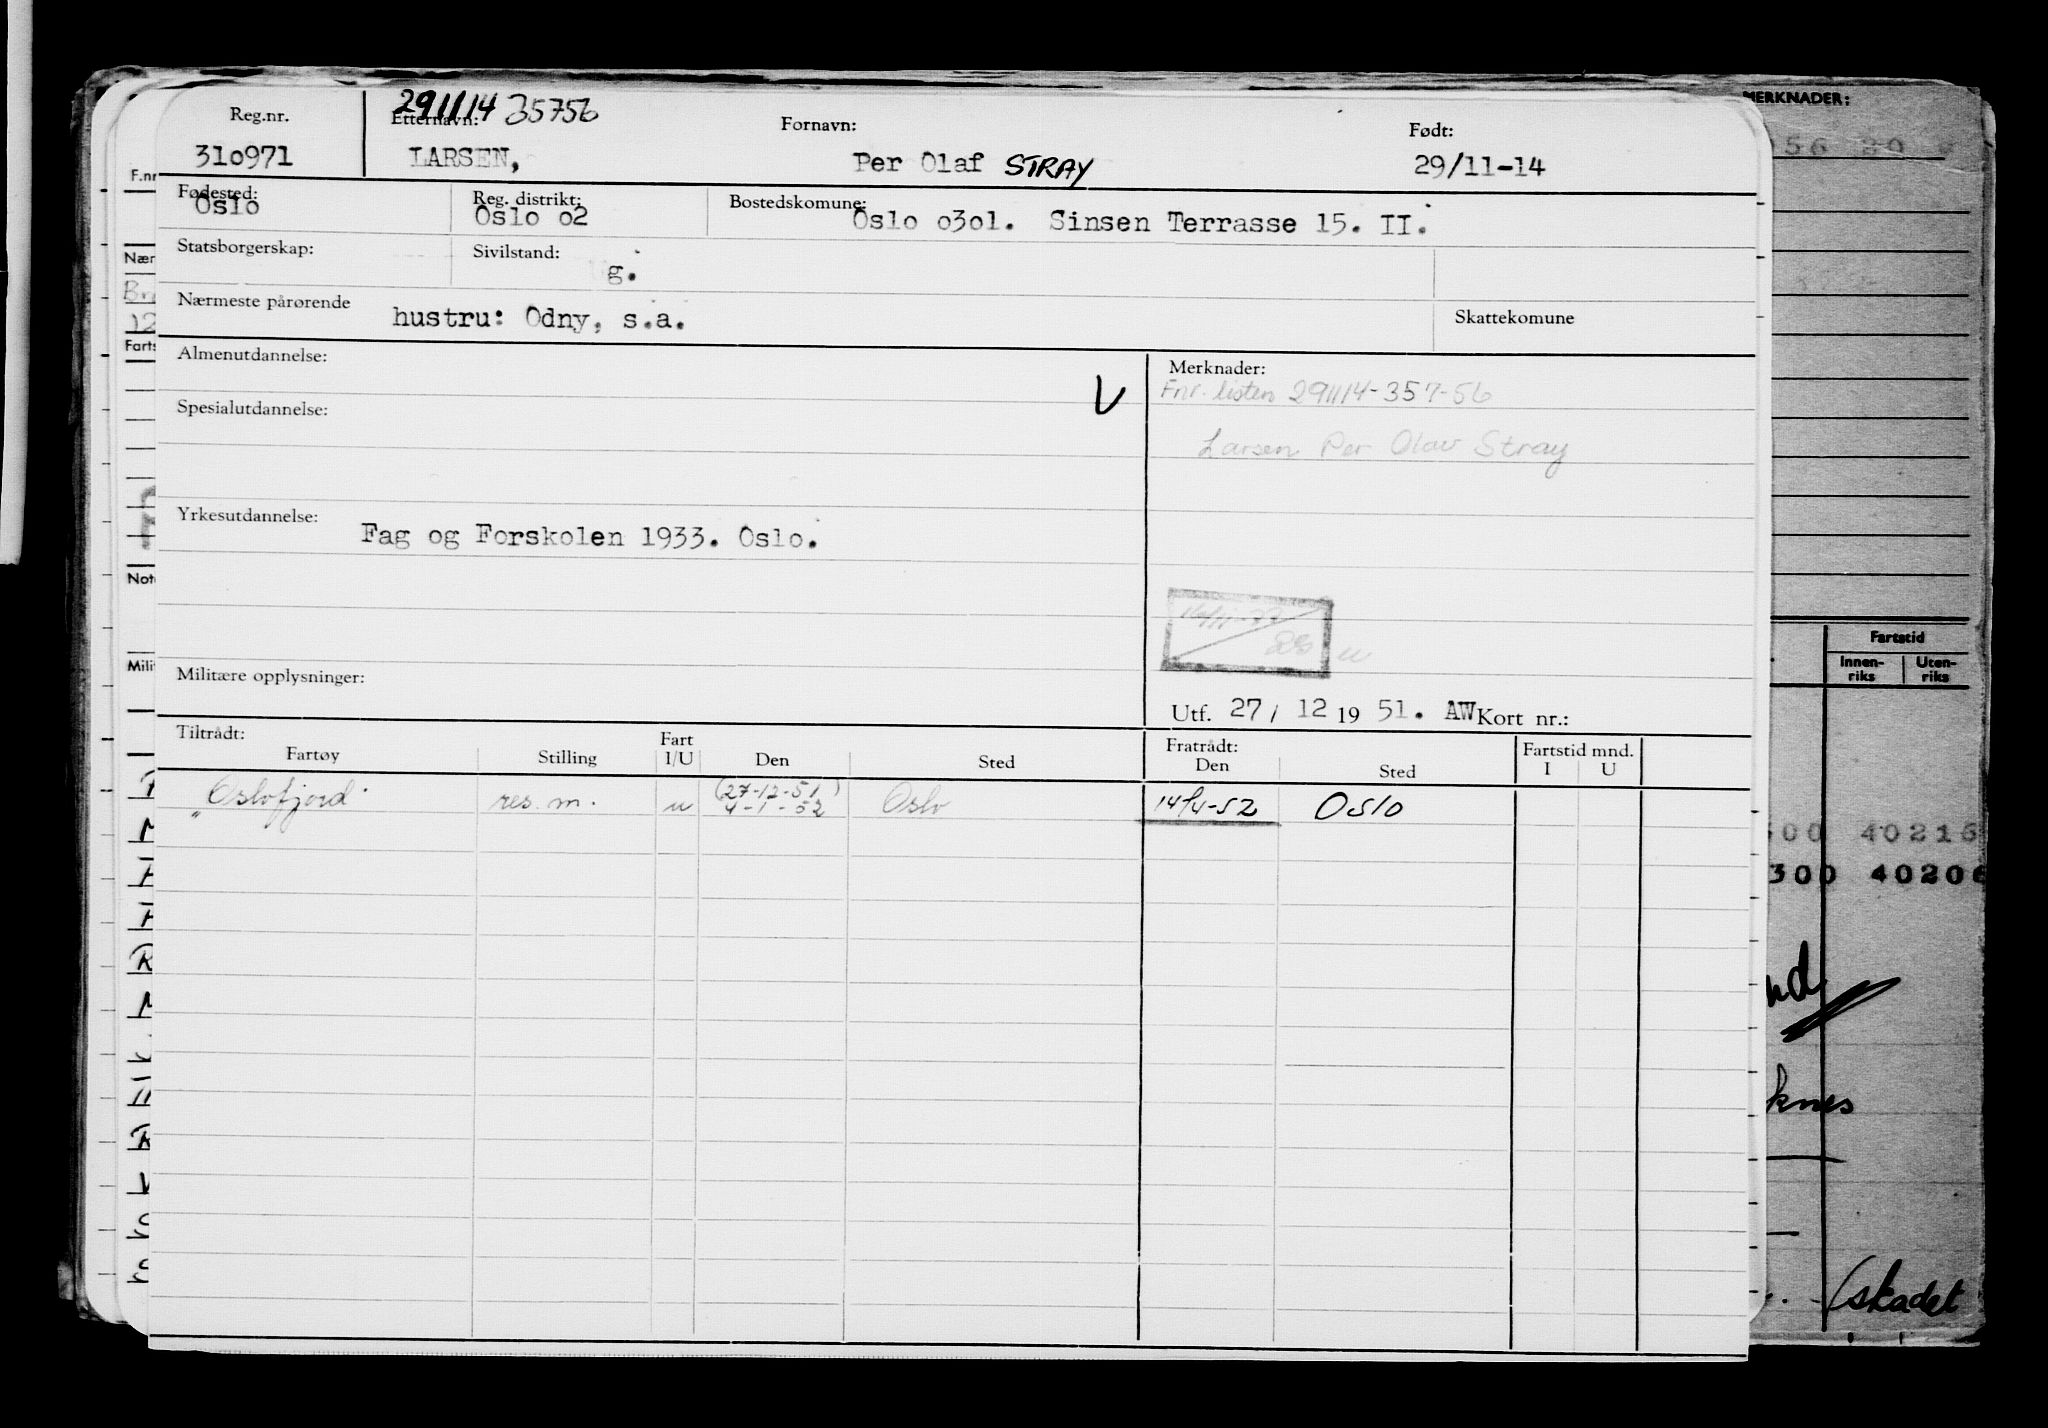 291114 35756
Reg.nr. Etternavn: Fornavn: Født:
310971 LARSEN, Per Olaf STRAY 29/11-14
Fødested: Reg. distrikt: Bostedskomune:
Oslo Oslo o2 Oslo o3o1. Sinsen Terrasse 15. II.
Statsborgerskap: Sivilstand: g.
Nærmeste pårørende hustru: Odny, s.a. Skattekomune
Almenutdannelse: Merknader:
V Fnr. listen 291114-357-56
Spesialutdannelse:
Larsen Per Olav Stray
Yrkesutdannelse: Fag og Forskolen 1933. Oslo.
Militære opplysninger:
Utf. 27/ 12 19 51. AW Kort nr.:
Tiltrådt: Fratrådt: Fartstid mnd.
Fartøy Stilling Fart I/U Den Sted Den Sted I U
"Oslofjord" res. m. u (27-12-51) 4-1-52 Oslo 14/4-52 Oslo
MERKNADER:
56
F.nr
Nær
Br
12
Farts
Not
Mili
Fartstid
Innen-riks Uten-riks
00 40216
300 40206
nd
knes
(skadet